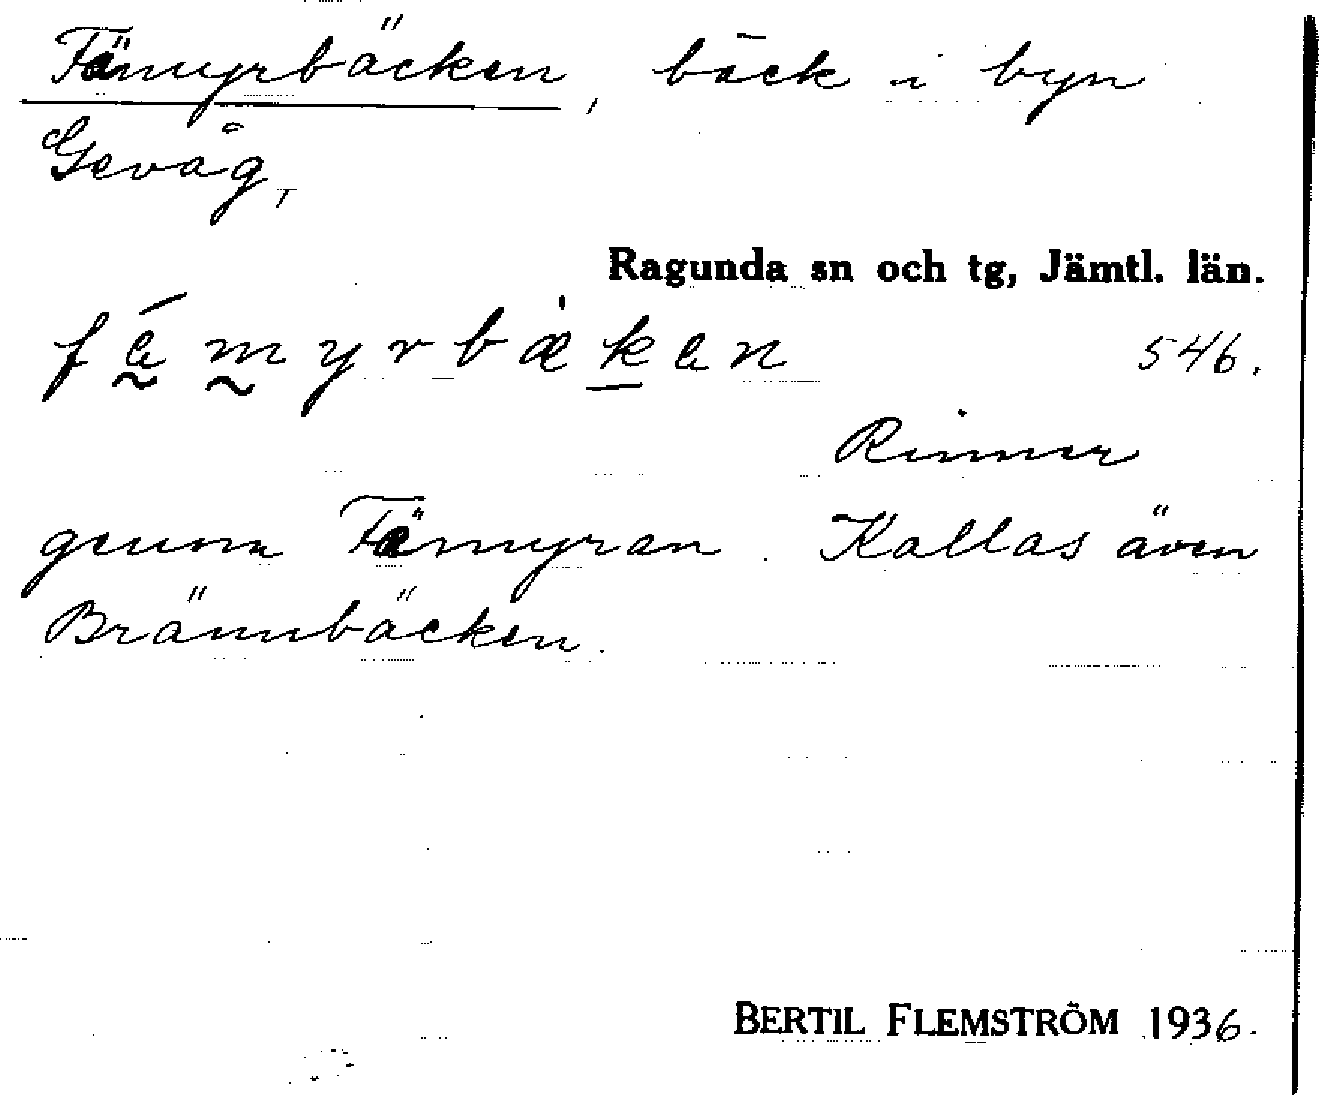 Fämyrbäcken, bäck i byn
Gevåg,
Ragunda sn och tg, Jämtl. län.
fæ̀myrbæken 546.
Rinner
genom Fämyran. Kallas även
Brännbäcken.
BERTIL FLEMSTRÖM 1936.